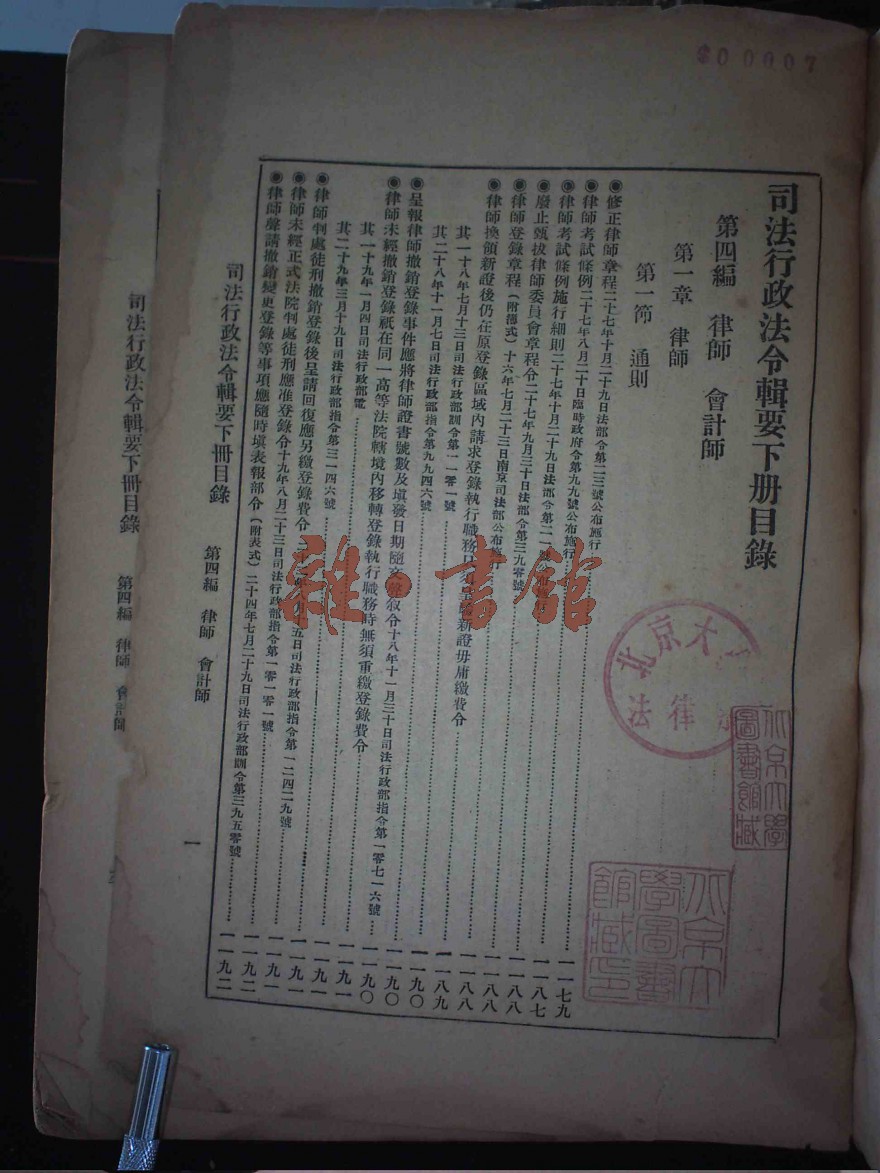 00007
司法行政法令輯要下册目錄
第四編　律師　會計師
第一章　律師
第一節　通則
◉修正律師章程二十七年十月二十九日法部令第二三號公布施行
◉律師考試條例二十七年八月二十日臨時政府令第九九號公布施行……一一七九
◉律師考試條例施行細則二十七年十月二十九日法部令第二二號公布施行……一一八七
◉廢止甄拔律師委員會章程令二十七年九月三十日法部令第三九零號……一一八八
◉律師登錄章程(附擄式)十六年七月二十三日南京司法部公布施行……一一八八
◉律師換領新證後仍在原登錄區域內請求登錄執行職務只須呈驗新證毋庸繳費令……一一八八
其一十八年七月十三日司法行政部訓令第一一零一號……一一八九
其二十八年十一月七日司法行政部指令第九九四六號……一一九〇
◉呈報律師撤銷登錄事件應將律師證書號數及填發日期隨文聲叙令十八年十一月三十日司法行政部指令第一零七一六號……一一九〇
◉律師未經撤銷登錄祇在同一高等法院轄境內移轉登錄執行職務時無須重繳登錄費令……一一九〇
其一十九年一月四日司法行政部電……一一九一
其二十九年三月十九日司法行政部指令第三一四六號……一一九一
◉律師判處徒刑撤銷登錄後呈請回復應另繳登錄費令
五日司法行政部指令第一二四二九號……一一九一
◉律師未經正式法院判處徒刑應准登錄令十九年八月二十三日司法行政部指令第一零一零一號……一一九二
◉律師聲請撤銷變更登錄等事項應隨時填表報部令(附表式)二十四年七月二十九日司法行政部訓令第三九五零號……一一九二
司法行政法令輯要下冊目錄　第四編　律師　會計師　一
司法行政法令輯要下冊目錄　第四編　律師　會計師
雜·書館
北京大
法律
北京大學
圖書館藏
北京大
學圖書
館藏印